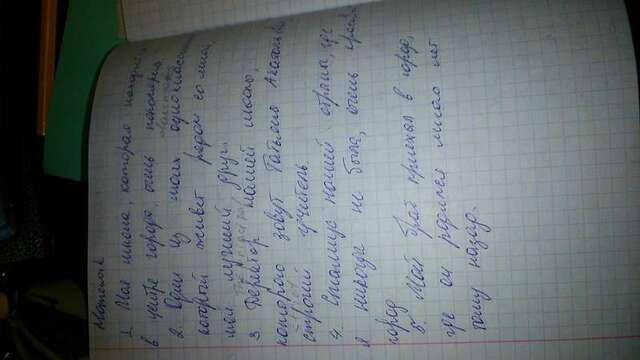 1. Моя школа, которая находится
в центре города, очень популярна.
2. Один из моих одноклассников,
который живёт рядом со мной,
мой лучший друг.
3 Директор нашей школы,
которого зовут Татьяна
строгий учитель.
4. Столица нашей страны, где
я никогда не был, очень
город
5. Мой брат приехал в город,
где он родился много лет
тому назад.